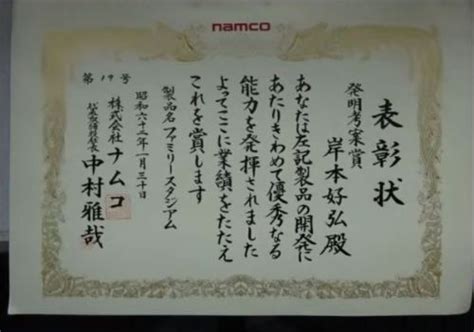 namco
表彰状
発明考案賞
岸本好弘殿
あなたは左記製品の開発に
あたりきわめて優秀なる
能力を発揮されました
よってここに業績をたたえ
これを賞します
製品名 ファミリースタジアム
昭和六十二年一月三十日
第19号
株式会社ナムコ
代表取締役社長
中村雅哉